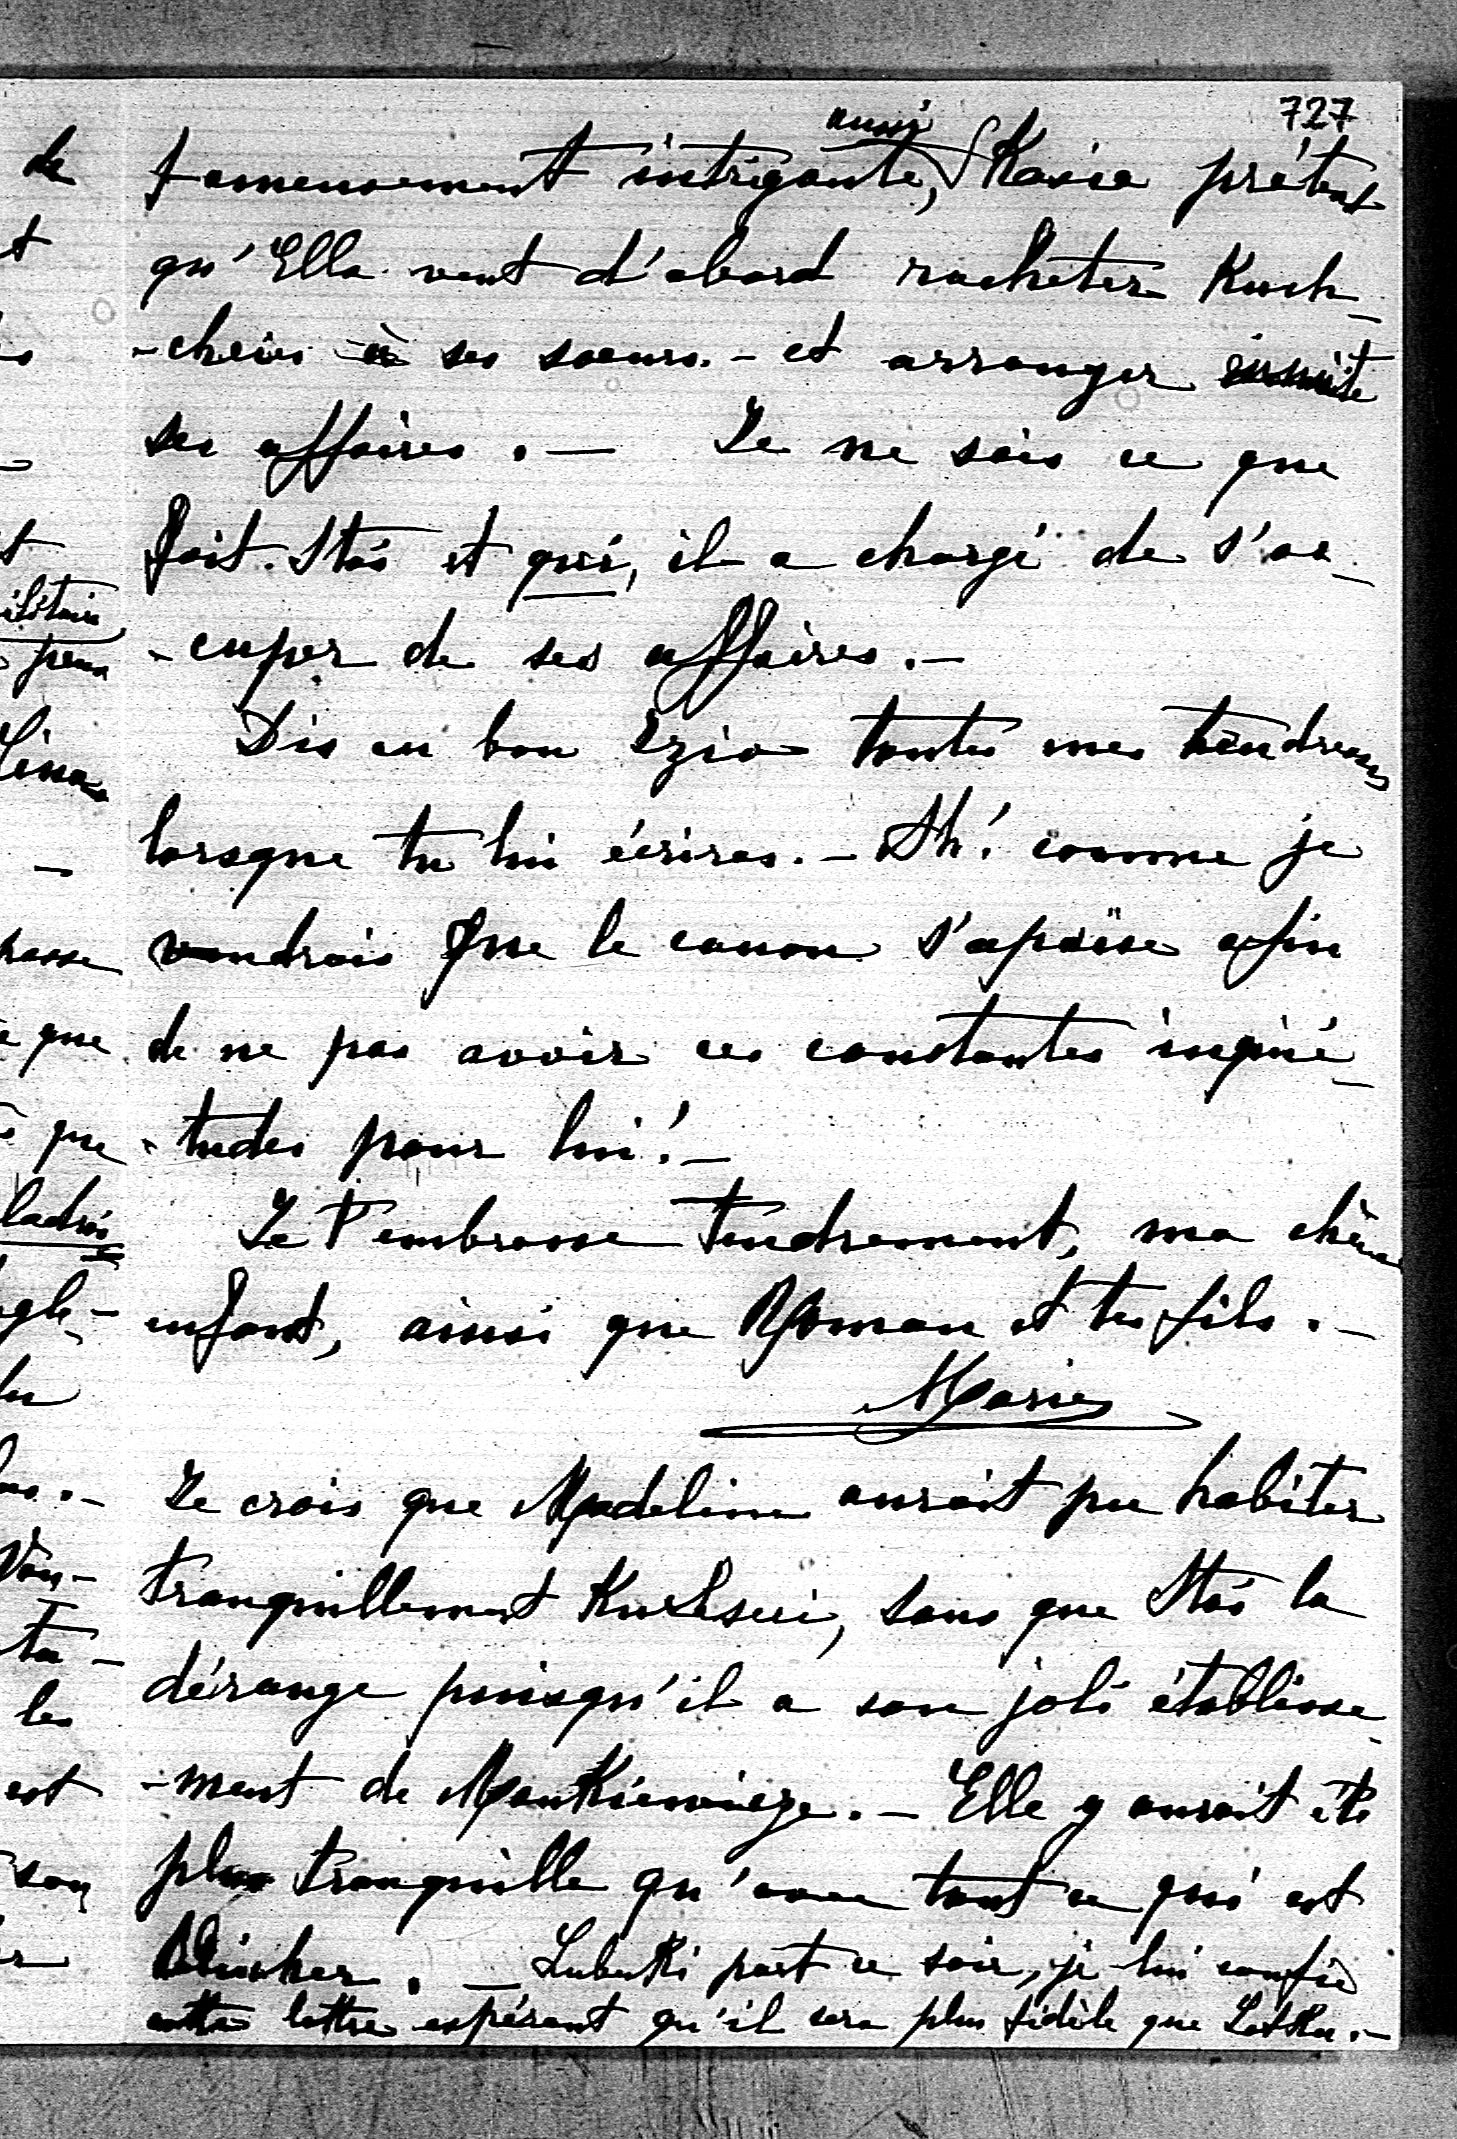 727
aussi
fameusement intrigante, Kasia prétend
qu'Ella veut d'abord racheter Kuch-
-cheies à ses soeurs. - et arranger ensuite
ses affaires. - Je ne sais ce que
fait Staś et qui, il a chargé de s'oc-
-cuper de ses affaires. -
Dis au bon Izio toutes mes tendresses
lorsque tu lui écriras. - Ah! comme je
voudrais que le canon s'apaise afin
de ne pas avoir ces constantes inquié-
-tudes pour lui! -
Je t'embrasse tendrement, ma chère
enfant, ainsi que Roman et tes fils. -
Marie
Je crois que Madeline aurait pu habiter
tranquillement, sans que Staś la
dérange puisqu'il a son joli établisse-
-ment de Mankiewicze. - Elle y aurait été
plus tranquille qu'avec tout ce qui est
Blücher. - Lubecki part ce soir, je lui confie
cette lettre espérant qu'il sera plus fidèle que
de
que
que
-
les
est
son